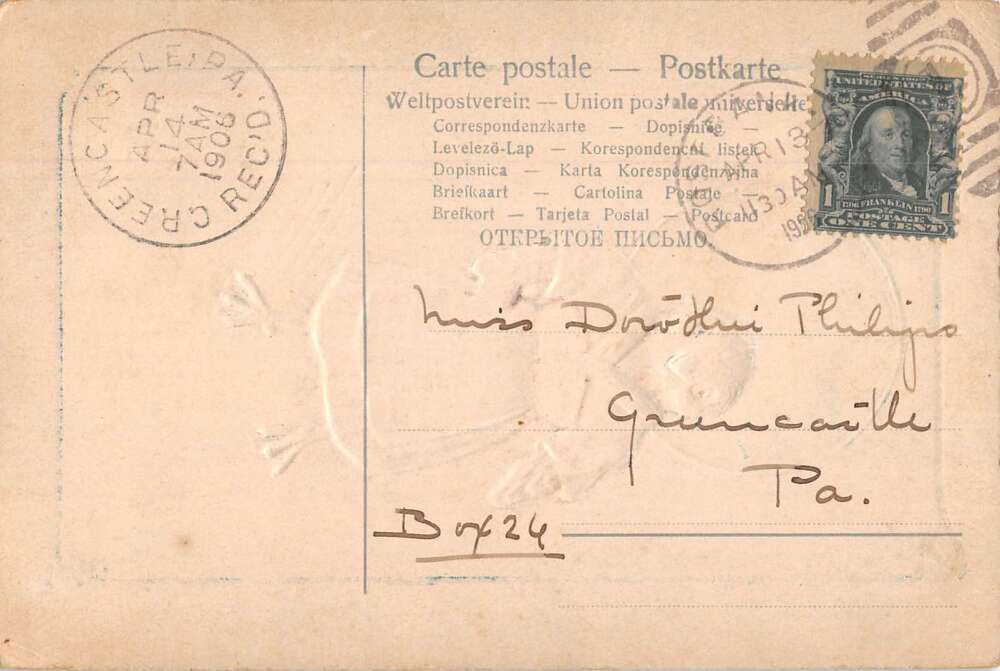 GREENCASTLE, PA. REC'D.
APR
14
7AM
1906
Carte postale — Postkarte
Weltpostverein — Union postale universelle
Correspondenzkarte — Dopisnice —
Levelezö-Lap — Korespondencni listek
Dopisnica — Karta Korespondenzyjna
Briefkaart — Cartolina Postale —
Brefkort — Tarjeta Postal — Postcard
ОТКРЫТОЕ ПИСЬМО.
APR 13
1130 AM
1906
SERIES 1902
UNITED STATES OF
AMERICA
1 1
1706 FRANKLIN 1790
POSTAGE
ONE CENT
Miss Dorothie Philips
Greencastle
Pa.
Box 24